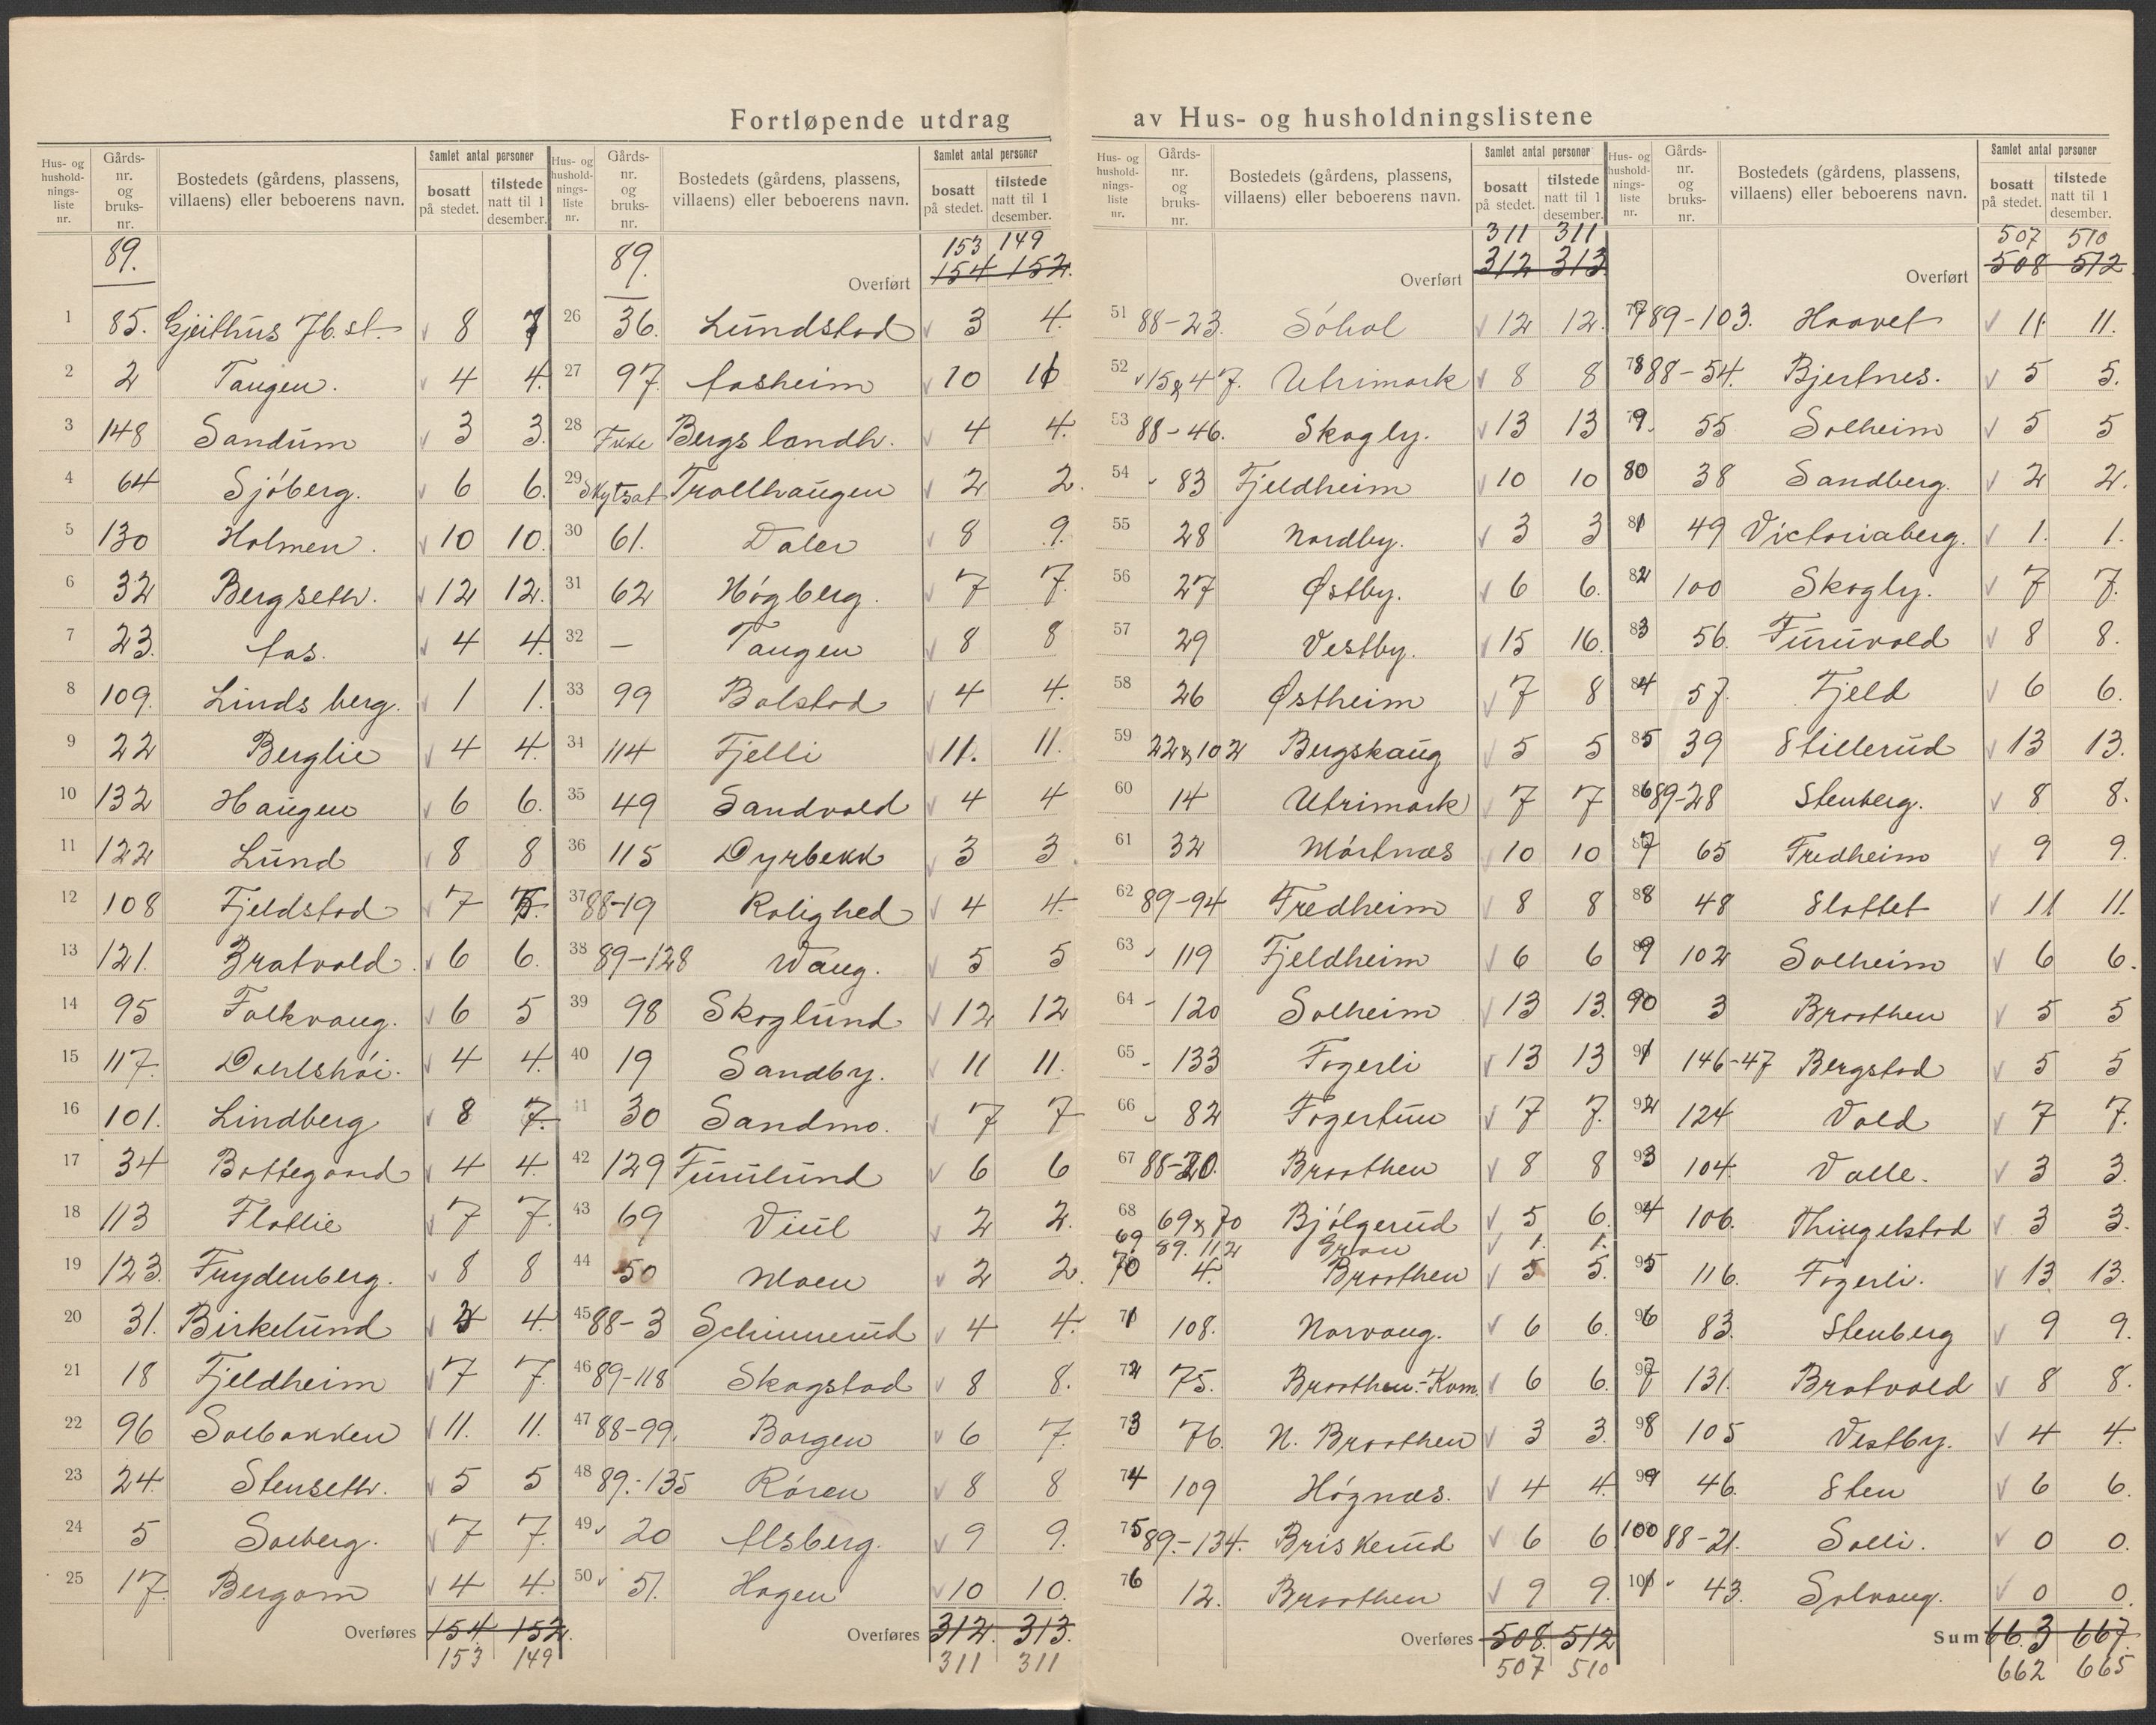 Fortløpende utdrag av Hus- og husholdningslistene
Hus- og husholdningsliste nr. Gårds-nr. og bruks-nr. Bostedets (gårdens, plassens, villaens) eller beboerens navn. Samlet antal personer bosatt på stedet. tilstede natt til 1 desember.
89.
1 85. Gjeithus Jb. st. 8 7
2 2 Tangen. 4 4.
3 148 Sandum 3 3.
4 64 Sjöberg. 6 6.
5 130 Holmen. 10 10.
6 32 Bergseth. 12 12.
7 23. Aas. 4 4.
8 109. Lindsberg. 1 1.
9 22 Berglie 4 4.
10 132 Haugen 6 6.
11 122 Lund 8 8
12 108 Fjeldstad 7
13 121. Bratvold. 6 6.
14 95 Folkvang. 6 5
15 117. Dahlshöi. 4 4.
16 101. Lindberg 8 7.
17 34 Bottegaard 4 4.
18 113 Flatlie 7 7.
19 123. Frydenberg. 8 8
20 31. Birkelund 4.
21 18 Fjeldheim 7 7.
22 96 Solbakken 11. 11.
23 24. Stenseth. 5 5
24 5 Solberg. 7 7.
25 17. Bergom 4 4.
Overføres 154 152.
153 149
Hus- og husholdningsliste nr. Gårds-nr. og bruks-nr. Bostedets (gårdens, plassens, villaens) eller beboerens navn. Samlet antal personer bosatt på stedet. tilstede natt til 1 desember.
153 149
89. Overført 154 152.
26 36. Lundstad 3 4.
27 97. Aasheim 10
28 Bergslandh. 4 4.
29 Skytsat Trollhaugen 2 2.
30 61. Daler 8 9.
31 62 Högberg. 7 7.
32 — Tangen 8 8
33 99 Bolstad 4 4.
34 114 Fjelli 11. 11.
35 49 Sandvold 4 4
36 115 Dyrbekk 3 3.
37 88-19 Rolighed 4 4.
38 89-128 Waug. 5 5
39 98 Skoglund 12 12
40 19 Sandby. 11 11.
41 30 Sandmo. 7 7
42 129 Furulund 6 6
43 69 Viul 2 2.
44 50 Moen 2 2.
45 88-3 4 4.
46 89-118 Skogstad 8 8.
47 88-99. Borgen 6 7.
48 89.-135 Rören 8 8
49 20 Alsberg. 9 9.
50 51. Hagen 10 10.
Overføres 312. 313.
311 311
Hus- og husholdningsliste nr. Gårds-nr. og bruks-nr. Bostedets (gårdens, plassens, villaens) eller beboerens navn. Samlet antal personer bosatt på stedet. tilstede natt til 1 desember.
311 311
Overført 312 313
51 88-23. Söhol 12 12.
52 15 & 47. Utrimark 8 8
53 88-46. Skogly. 13 13
54 - 83 Fjeldheim 10 10
55 28 Nordby. 3 3
56 27 Østby. 6 6.
57 29 Vestby. 15 16.
58 26 Østheim 7 8
59 22 & 102 Bergskaug 5 5
60 14 Utrimark 7 7
61 32 Mörtnæs 10 10
62 89-94 Fredheim 8 8
63 - 119 Fjeldheim 6 6
64 - 120 Solheim 13 13.
65 - 133 Fagerli 13 13
66 - 82 Fagertun 7 7.
67 88-20. Braathen 8 8
68 69 & 70 Bjölgerud 5 6.
69 89. 112 Gran 1. 1.
70 4. Braathen 5 5.
71 108. Norvang. 6 6.
72 75. Braathen.-Kom. 6 6.
73 76. N. Braathen 3 3.
74 109 Högnæs. 4 4.
75 89.-134. Briskerud 6 6
76 12. Braathen 9 9.
Overføres 508. 512
507 510
Hus- og husholdningsliste nr. Gårds-nr. og bruks-nr. Bostedets (gårdens, plassens, villaens) eller beboerens navn. Samlet antal personer bosatt på stedet. tilstede natt til 1 desember.
507 510
Overført 508 512
77 89-103. Haavet 11 11.
78 88-54. Bjertnes. 5 5.
79. 55 Solheim 5 5
80 38 Sandberg. 2 2.
81 49 Victoriaberg. 1. 1.
82 100 Skogly. 7 7.
83 56. Furuvold 8 8.
84 57. Fjeld 6 6.
85 39 Stillerud 13 13.
86 89-28 Stenberg. 8 8.
87 65 Fredheim 9 9.
88 48 Slottet 11 11.
89 102 Solheim 6 6.
90 3 Braathen 5 5
91 146-47 Bergstad 5 5
92 124 Vold 7 7.
93 104. Valle. 3 3.
94 106. Thingelstad 3 3.
95 116. Fagerli. 13 13.
96 83. Stenberg 9 9.
97 131. Bratvold 8 8.
98 105 Vestby. 4 4.
99 46. Sten 6 6.
100 88-21. Solli. 0 0.
101 43. Solvang. 0 0.
Sum 663 667.
662 665